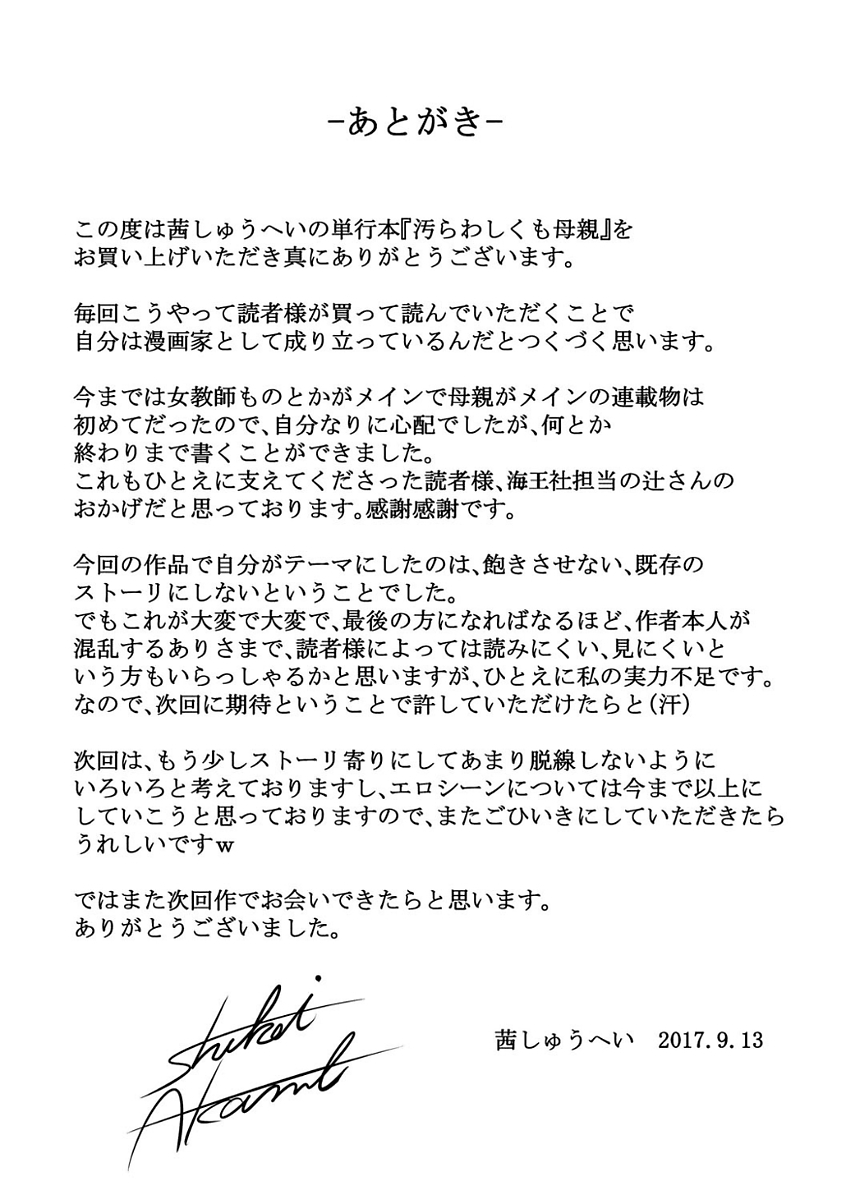 -あとがき-
この度は茜しゅうへいの単行本『汚らわしくも母親』を
お買い上げいただき真にありがとうございます。
毎回こうやって読者様が買って読んでいただくことで
自分は漫画家として成り立っているんだとつくづく思います。
今までは女教師ものとかがメインで母親がメインの連載物は
初めてだったので、自分なりに心配でしたが、何とか
終わりまで書くことができました。
これもひとえに支えてくださった読者様、海王社担当の辻さんの
おかげだと思っております。感謝感謝です。
今回の作品で自分がテーマにしたのは、飽きさせない、既存の
ストーリにしないということでした。
でもこれが大変で大変で、最後の方になればなるほど、作者本人が
混乱するありさまで、読者様によっては読みにくい、見にくいと
いう方もいらっしゃるかと思いますが、ひとえに私の実力不足です。
なので、次回に期待ということで許していただけたらと(汗)
次回は、もう少しストーリ寄りにしてあまり脱線しないように
いろいろと考えておりますし、エロシーンについては今まで以上に
していこうと思っておりますので、またごひいきにしていただきたら
うれしいですｗ
ではまた次回作でお会いできたらと思います。
ありがとうございました。
茜しゅうへい　2017.9.13